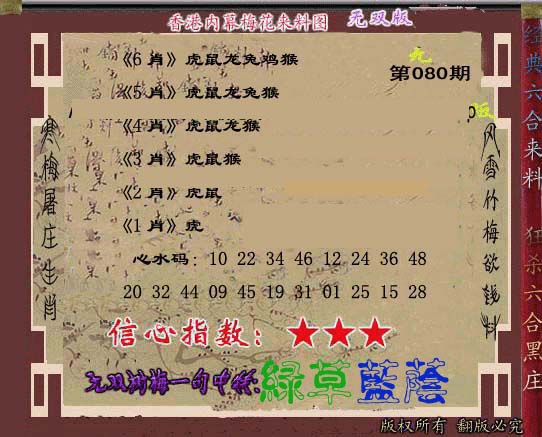 香港内幕梅花来料图 无双版
第080期
《6 肖》虎鼠龙兔鸡猴
《5 肖》虎鼠龙兔猴
《4 肖》虎鼠龙猴
《3 肖》虎鼠猴
《2 肖》虎鼠
《1 肖》虎
心水码：10 22 34 46 12 24 36 48
20 32 44 09 45 19 31 01 25 15 28
信心指数：★★★
绿草蓝荫
寒梅屠庄生肖
风雪竹梅欲钱料
经典六合来料 狂杀六合黑庄
版权所有 翻版必究